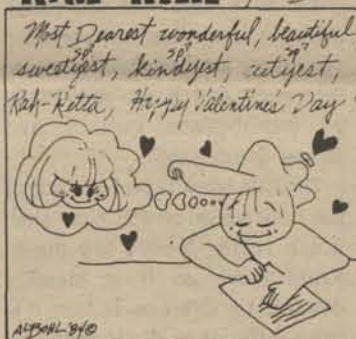 Most Dearest wonderful, beautiful
sp? sp? sp?
sweetyest, kindyest, cutyest,
Rah-Ketta, Happy Valentine's Day!
AL BOHL '84 ©